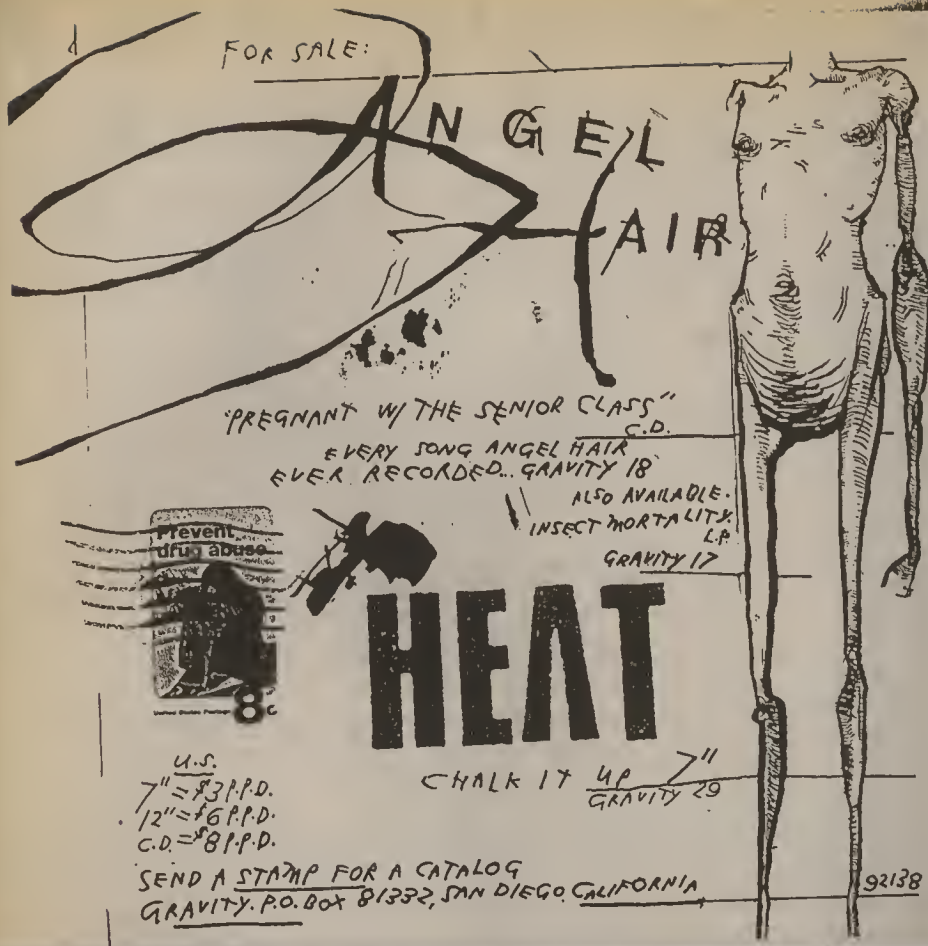 FOR SALE:
ANGEL
HAIR
"PREGNANT W/ THE SENIOR CLASS"
C.D.
EVERY SONG ANGEL HAIR
EVER RECORDED... GRAVITY 18
ALSO AVAILABLE.
INSECT MORTALITY.
LP
GRAVITY 17
Prevent
drug abuse
United States Postage 8c
HEAT
CHALK IT UP 7"
GRAVITY 29
U.S.
7" = $3 P.P.D.
12" = $6 P.P.D.
C.D. = $8 P.P.D.
SEND A STAMP FOR A CATALOG
GRAVITY. P.O. BOX 81332, SAN DIEGO, CALIFORNIA 92138